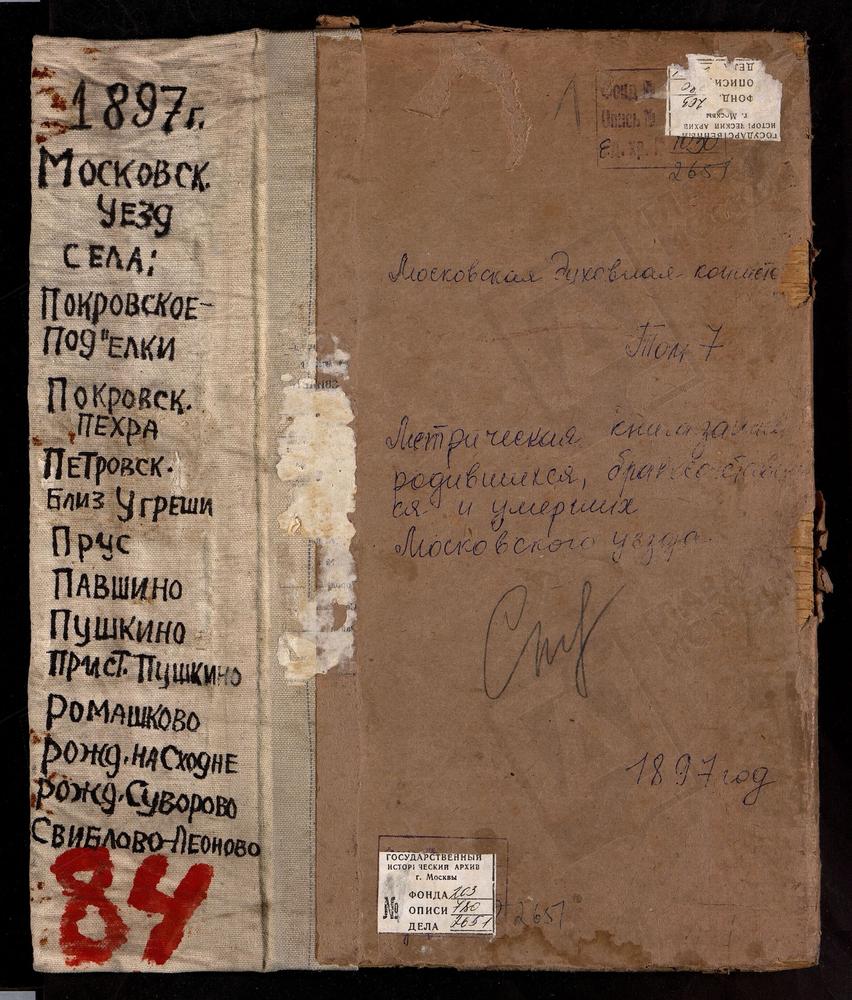 1897г.
МОСКОВСК.
УЕЗД
СЕЛА;
ПОКРОВСКОЕ-
ПОД"ЕЛКИ
ПОКРОВСК.
ПЕХРА
ПЕТРОВСК.
БЛИЗ УГРЕШИ
ПРУС
ПАВШИНО
ПУШКИНО
ПРИСТ. ПУШКИНО
РОМАШКОВО
РОЖД. НА СХОДНЕ
РОЖД. СУВОРОВО
СВИБЛОВО-ЛЕОНОВО
84
1
Фонд №
Опись №
Ед. хр.
2651
ГОСУДАРСТВЕННЫЙ
ИСТОРИЧЕСКИЙ АРХИВ
г. Москвы
ФОНД
ОПИСИ
Московская духовная консисто
Том 7
Метрическая книга записи
родившихся, бракосочетавш
ся и умерших
Московского уезда.
1897 год
ГОСУДАРСТВЕННЫЙ
ИСТОРИЧЕСКИЙ АРХИВ
г. Москвы
№
ФОНДА 203
ОПИСИ 780
ДЕЛА 2651
2651